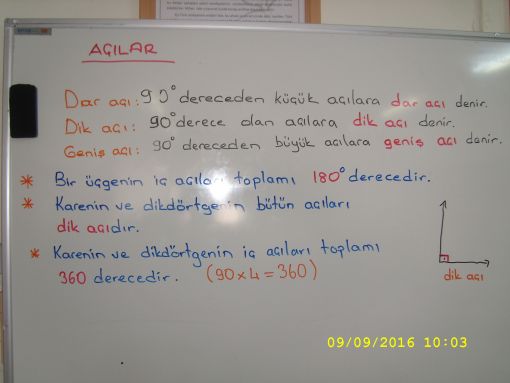 AÇILAR
Dar açı: 90° dereceden küçük açılara dar açı denir.
Dik açı: 90° derece olan açılara dik açı denir.
Geniş açı: 90° dereceden büyük açılara geniş açı denir.
* Bir üçgenin iç açıları toplamı 180° derecedir.
* Karenin ve dikdörtgenin bütün açıları
dik açıdır.
* Karenin ve dikdörtgenin iç açıları toplamı
360 derecedir. (90 x 4 = 360)
dik açı
09/09/2016 10:03